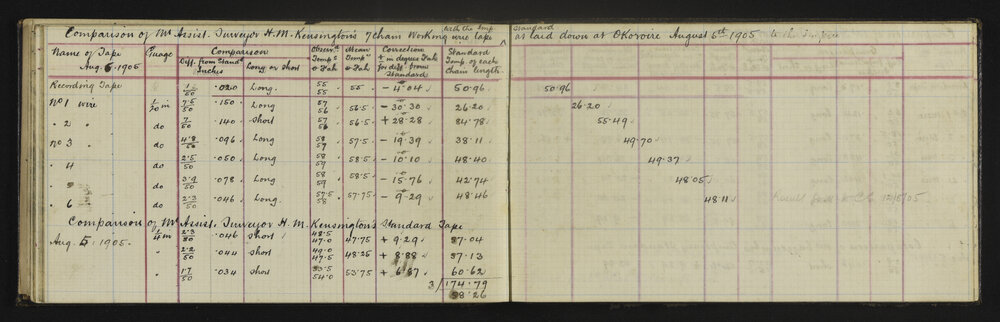 Comparison of Mr Assist. Surveyor H. M. Kensington's 7 Chain Working wire tape with the Imp. Standard as laid down at Okoroire August 5th 1905
Name of Tape Guage Comparison Observd. Temps ° Fah Mean Temp ° Fah Correction ± in degrees Fah for diff. from Standard Standard Temp. of each Chain length.
Aug. 5. 1905 Diff. from Standd. Inches Long or Short
Recording Tape 1/50 .020 Long. 55 55 55 - 4.04 50.96 50.96
No 1 wire 1/20 in 7.5/50 .150 Long 57 56 56.5 - 30.30 26.20 26.20
" 2 " do 7/50 .140 Short 57 56 56.5 + 28.28 84.78 55.49
No 3 " do 4.8/50 .096 Long 58 57 57.5 - 19.39 38.11 49.70
" 4 do 2.5/50 .050 Long 58 59 58.5 - 10.10 48.40 49.37
" 5 do 3.9/50 .078 Long 58 59 58.5 - 15.76 42.74 48.05
" 6 do 2.3/50 .046 Long. 57.5 58 57.75 - 9.29 48.46 48.11
Comparison of Mr Assist. Surveyor H. M. Kensington's Standard Tape
Aug. 5. 1905. 2.3/50 .046 Short 48.5 47.0 47.75 + 9.29 57.04
" 2.2/50 .044 Short 49.0 47.5 48.25 + 8.88 57.13
" 1.7/50 .034 Short 53.5 54.0 53.75 + 6.87 60.62
3/174.79
58.26